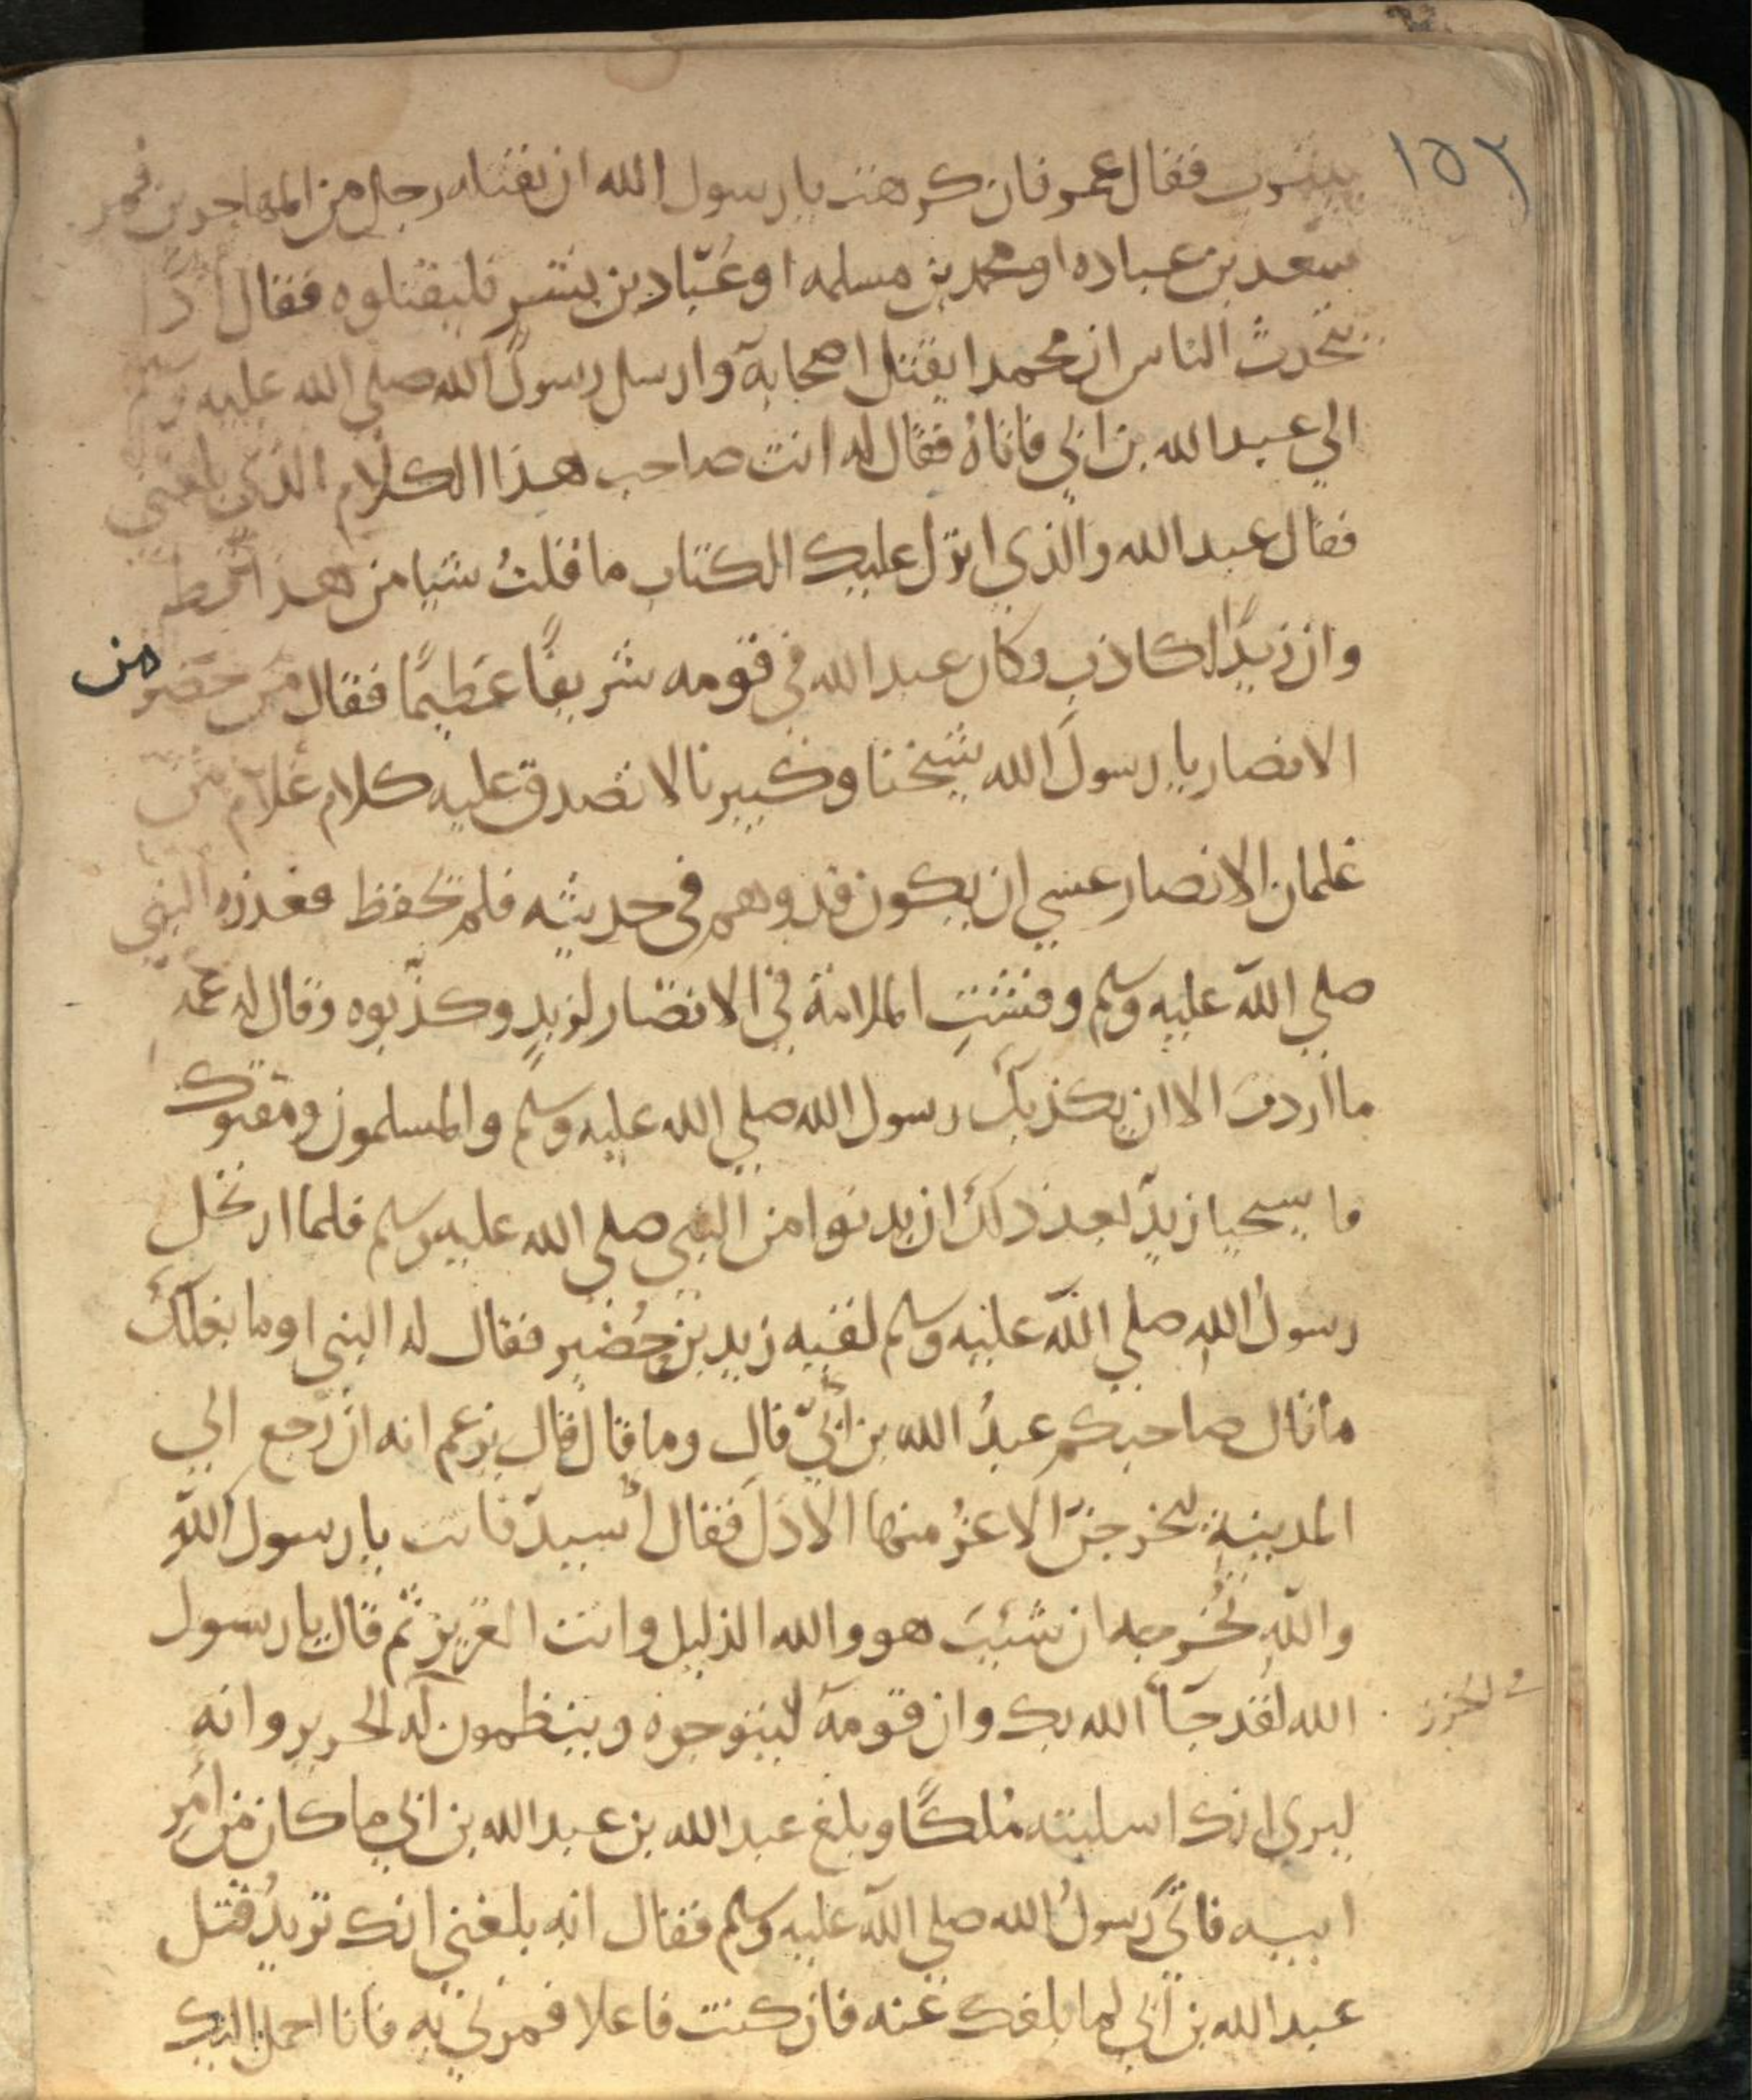 ١٥٢
بيثرب فقال عمر فان كرهت يا رسول الله ان يقتله رجل من المهاجرين فمر
سعد بن عباده او محمد بن مسلمه او عَبّاد بن بشر فليقتلوه فقال اذًا
يتحدث الناس ان محمدا يقتل اصحابه وارسل رسول الله صلي الله عليه وسلم
الي عبد الله بن ابي فاتاهُ فقال له انت صاحب هذا الكلام الذي بلغني
فقال عبد الله والذي انزل عليك الكتاب ما قلتُ شيا من هذا قط
وان زيدًا لكاذب وكان عبد الله في قومه شريفًا عظيمًا فقال من حضر من
الانصار يا رسولَ الله شيخنا وكبيرنا لا تصدق عليه كلام غلام من
غلمان الانصار عسي ان يكون قد وهم في حديثه فلم يحفظ فعذره النبي
صلي الله عليه وسلم وفشتِ الملامة في الانصار لزيدٍ وكذّبوه وقال له عمه
ما اردت الا ان يكذبك رسول الله صلي الله عليه وسلم والمسلمون ومقتوك
فاستحيا زيدٌ بعد ذلك ان يدنوا من النبي صلي الله عليه وسلم فلما ارتحل
رسولُ الله صلي الله عليه وسلم لقيه زيد بن حُضير فقال له النبي اوما بلغك
ما قال صاحبكم عبدُ الله بن اُبيّ قال وما قال قال يزعم انه ان رجع الي
المدينةِ ليخرجنّ الاعزُ منها الاذلَ فقال اُسيدٌ فانت يا رسول الله
واللهِ تُخرجه ان شئتَ هو والله الذليل وانت العزيز ثم قال يا رسول
الله لقد جآ الله بك وان قومه ليتوجوه وينظمون له الحرير وانه
الخرز
ليري انك اسلبته مُلكًا وبلغ عبد الله بن عبد الله بن ابي ما كان من امر
ابيه فاتي رسولُ الله صلي الله عليه وسلم فقال انه بلغني انك تريدُ قتل
عبد الله بن اُبي لما بلغك عنه فان كنت فاعلا فمرني به فانا احمل اليك